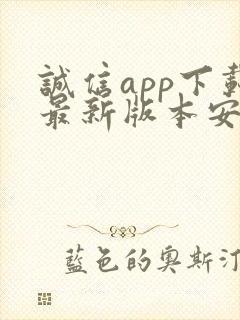 誠信app下載
最新版本安
藍色的奧斯汀